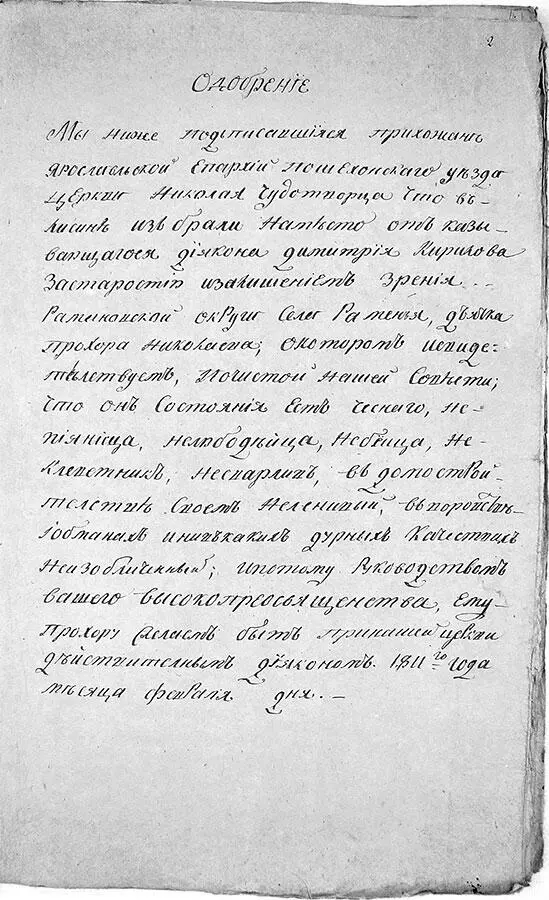 2
Одобренїе
Мы ниже подписавшїяся прихожане
Ярославльской Епархїи Пошехонскаго уезда
церкви Николая Чудотворца что въ
изъбрали наместо отъказы-
вающагося дїякона димитрїя Кирилова
застаростїю излишенїемъ зренїя..
округи села Раменья, дьячка
прохора николаева; окоторомъ
почистой нашей совести;
что онъ состоянїя есть чеснаго, не-
пїяница, не не-
клеветникъ, несварливъ, въ домострой-
тельстве своемъ неленивый, въворовстве
обманахъ иникакихъ дурныхъ качествахъ
неизобличенный; ипотому руководствомъ
вашего высокопреосвященства, ему
прохору быть принашей церкви
действительнымъ дїякономъ. 1811го года
месяца февраля дня. —